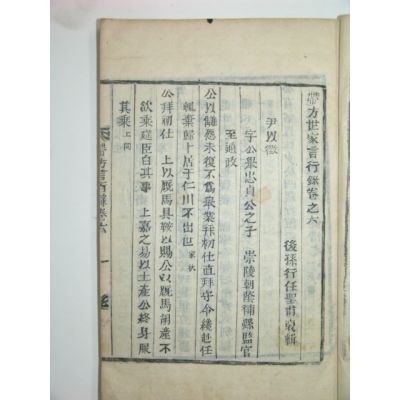 世家言行錄卷之六
後孫行任聖甫裒輯
尹以徵
字公衆忠貞公之子 崇陵朝蔭補縣監官
至通政
公以讎怨未復不爲衆業拜初仕直拜守令纔赴任
輒棄歸卜居于仁川不出世家狀
公拜初仕 上以厩馬具鞍以賜公以厩馬閑產不
欲乘筵臣白其事 上嘉之易以土產公終身服
其乘上同
言行錄卷六 一